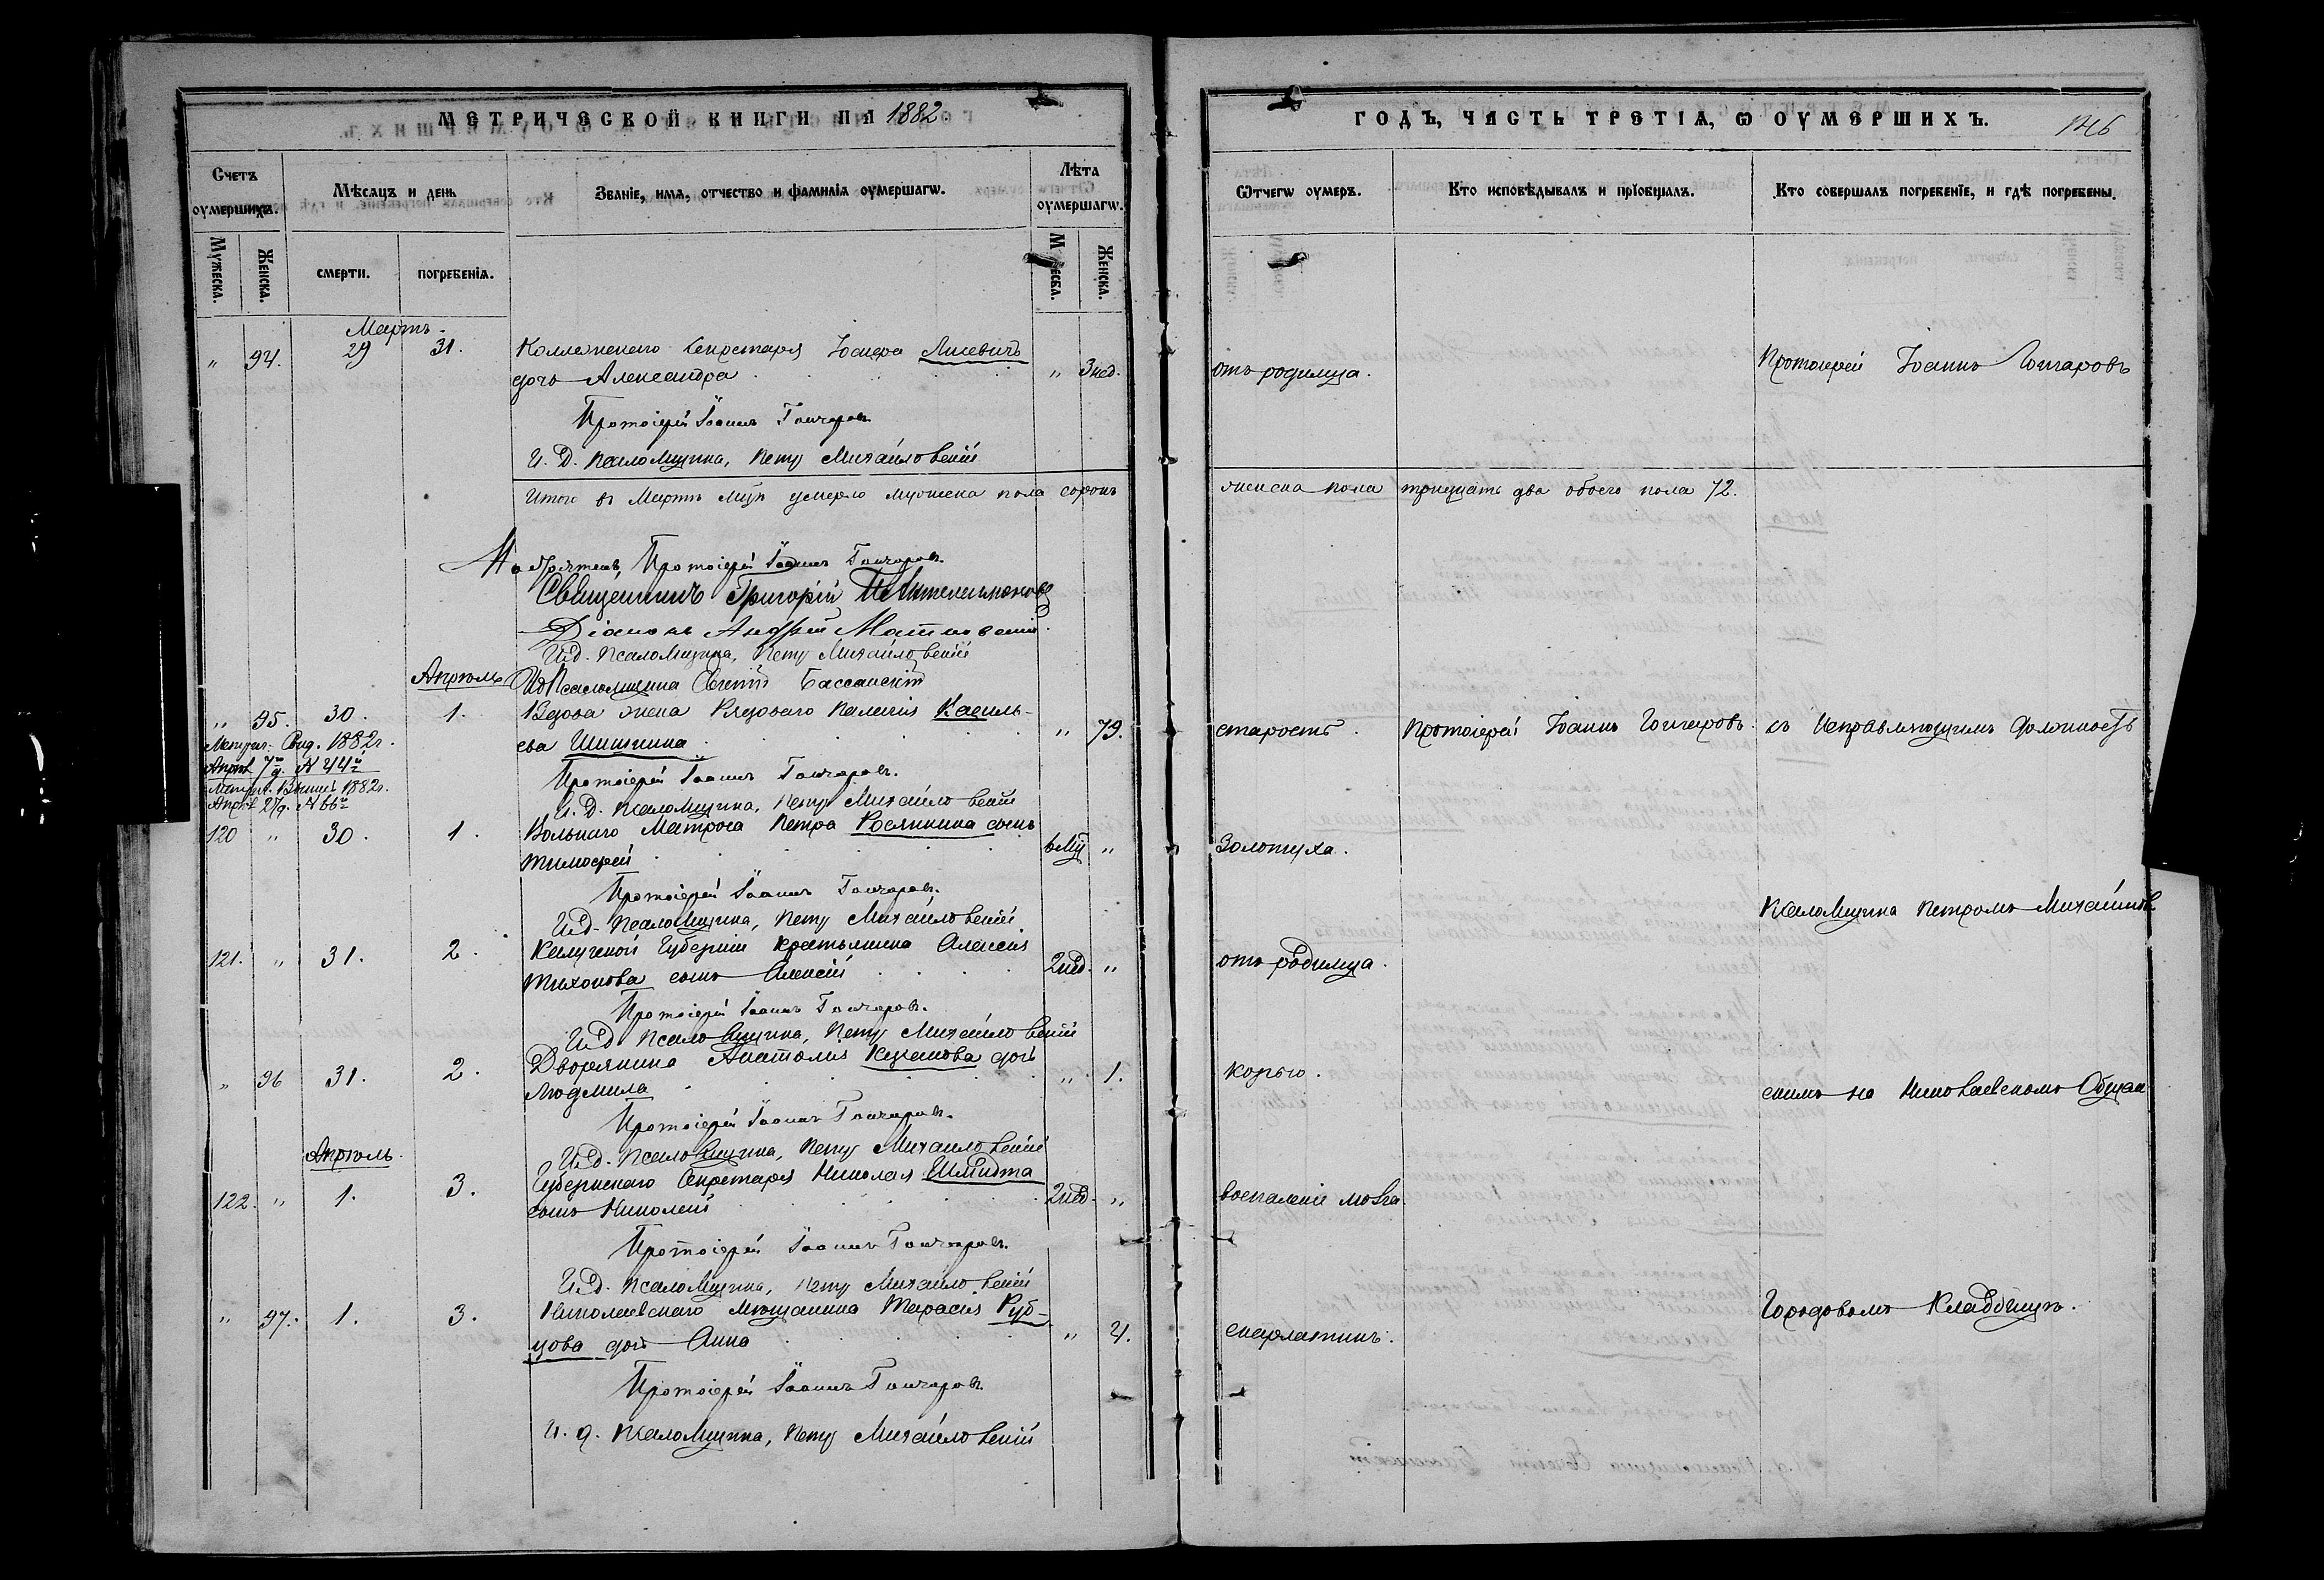 МЕТРИЧЕСКОЙ КНИГИ НА 1882
Счетъ оумершихъ.
Мѣсяцъ и день
Званіе, имя, отчество и фамилія оумершагѡ.
Лѣта оумершагѡ.
Мужеска.
Женска.
смерти.
погребенія.
Мужеска.
Женска.
Мартъ.
" 94. 29 31. Коллежскаго Секретаря Іосифа Лисевичъ
дочь Александра " 3 нед.
Протоіерей Іоаннъ Гончаровъ
И. Д. псаломщика, Петръ Михайловскій
Итого въ Мартѣ мцѣ умерло мужеска пола сорокъ
Протоіерей Іоаннъ Гончаровъ.
Священникъ Григорій
Діаконъ Андрей
И.д. псаломщика, Петръ Михайловскій
Апрѣль
ИД Псаломщика Бассанскій
" 95. 30. 1. Вдова жена Рядоваго
ева Шишкина " 79.
1882 г.
7 д. № 44
1882 г.
27 д. № 66
Протоіерей Іоаннъ Гончаровъ.
И. Д. псаломщика, Петръ Михайловскій
120 " 30. 1. Вольнаго Матроса Петра Росянкина сынъ
Тимофей 6 мц "
Протоіерей Іоаннъ Гончаровъ.
И.Д. псаломщика, Петръ Михайловскій
121. " 31. 2. Калужской Губерніи крестьянина Алексія
Тихонова сынъ Алексій 2 нед. "
Протоіерей Іоаннъ Гончаровъ.
И.Д. псаломщика, Петръ Михайловскій
" 96 31. 2. Дворянина Анатолія дочь
Людмила " 1.
Протоіерей Іоаннъ Гончаровъ.
И.Д. псаломщика, Петръ Михайловскій
Апрѣль.
122. " 1. 3. Губернскаго Секретаря Николая Шмидта
сынъ Николай 2 нед. "
Протоіерей Іоаннъ Гончаровъ.
И.Д. псаломщика, Петръ Михайловскій
" 97. 1. 3. Николаевскаго мѣщанина Тарасія Руб-
цова дочь Анна " 4.
Протоіерей Іоаннъ Гончаровъ.
И. д. псаломщика, Петръ Михайловскій
ГОДЪ, ЧАСТЬ ТРЕТІЯ, Ѡ ОУМЕРШИХЪ. 146
Ѿчегѡ оумеръ.
Кто исповѣдывалъ и прїобщалъ.
Кто совершалъ погребенїе, и гдѣ погребены.
отъ родимца.
Протоіерей Іоаннъ Гончаровъ
женска пола тридцать два обоего пола 72.
старость.
Протоіерей Іоаннъ Гончаровъ.
съ Исправляющимъ должность
золотуха.
псаломщика Петромъ Михайлов
отъ родимца.
корью.
скимъ на Николаевскомъ Общем
воспаленіе мозга.
Городовомъ Кладбищѣ.
скарлатинѣ.